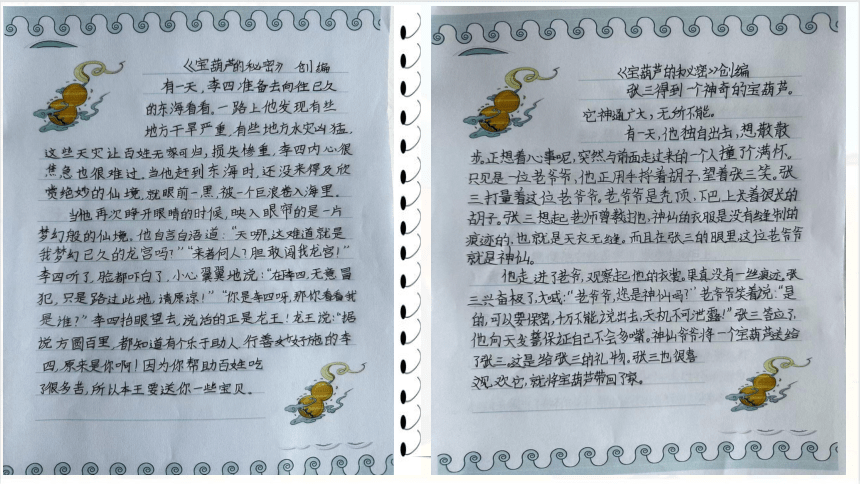 《宝葫芦的秘密》 创编
有一天,李四准备去向往已久
的东海看看。一路上他发现有些
地方干旱严重,有些地方水灾凶猛。
这些天灾让百姓无家可归,损失惨重,李四内心很
焦急也很难过。当他赶到东海时,还没来得及欣
喷绝妙的仙境,就眼前一黑,被一个巨浪卷入海里。
当他再次睁开眼睛的时候,映入眼帘的是一片
梦幻般的仙境,他自言自语道:“天哪,这难道就是
我梦幻已久的龙宫吗?”“来着何人?胆敢闯我龙宫!”
李四听了,脸都吓白了,小心翼翼地说:“在李四,无意冒
犯,只是路过此地,请原谅!”“你是李四呀,那你看看我
是谁?”李四抬眼望去,说话的正是龙王!龙王说:“据
说方圆百里,都知道有个乐于助人,行善好施的李
四,原来是你啊!因为你帮助百姓吃
了很多苦,所以本王要送你一些宝贝。
《宝葫芦的秘密》创编
张三得到一个神奇的宝葫芦。
它神通广大,无所不能。
有一天,他独自出去,想散散
步。正想着心事呢,突然与前面走过来的一个人撞了个满怀。
只见是一位老爷爷,他正用手捋着胡子,望着张三笑。张
三打量着这位老爷爷。老爷爷是秃顶,下巴上长着很长的
胡子。张三想起老师曾教过他,神仙的衣服是没有缝制的
痕迹的,也就是天衣无缝。而且在张三的眼里这位老爷爷
就是神仙。
他走进了老爷,观察起他的衣裳。果真没有一丝痕迹。张
三兴奋极了,大喊:“老爷爷,您是神仙吗?”老爷爷笑着说:“是
的,可以要保密,千万不能说出去,天机不可泄露!”张三答应了,
他向天发誓保证自己不会多嘴。神仙爷爷将一个宝葫芦送给
了张三。这是给张三的礼物,张三也很喜
欢它,就将宝葫芦带回了家。